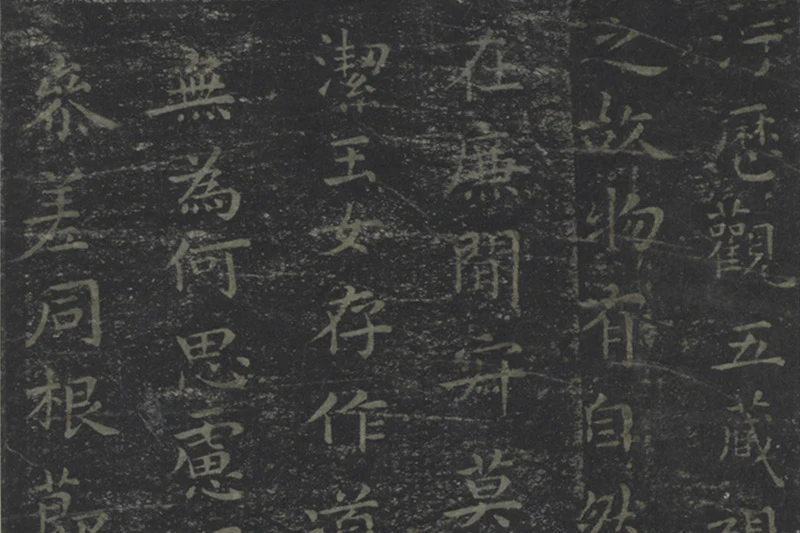 汙歷觀五藏視
之故物有自然
在廉閒寂莫
潔玉女存作道
無為何思慮
參差同根節